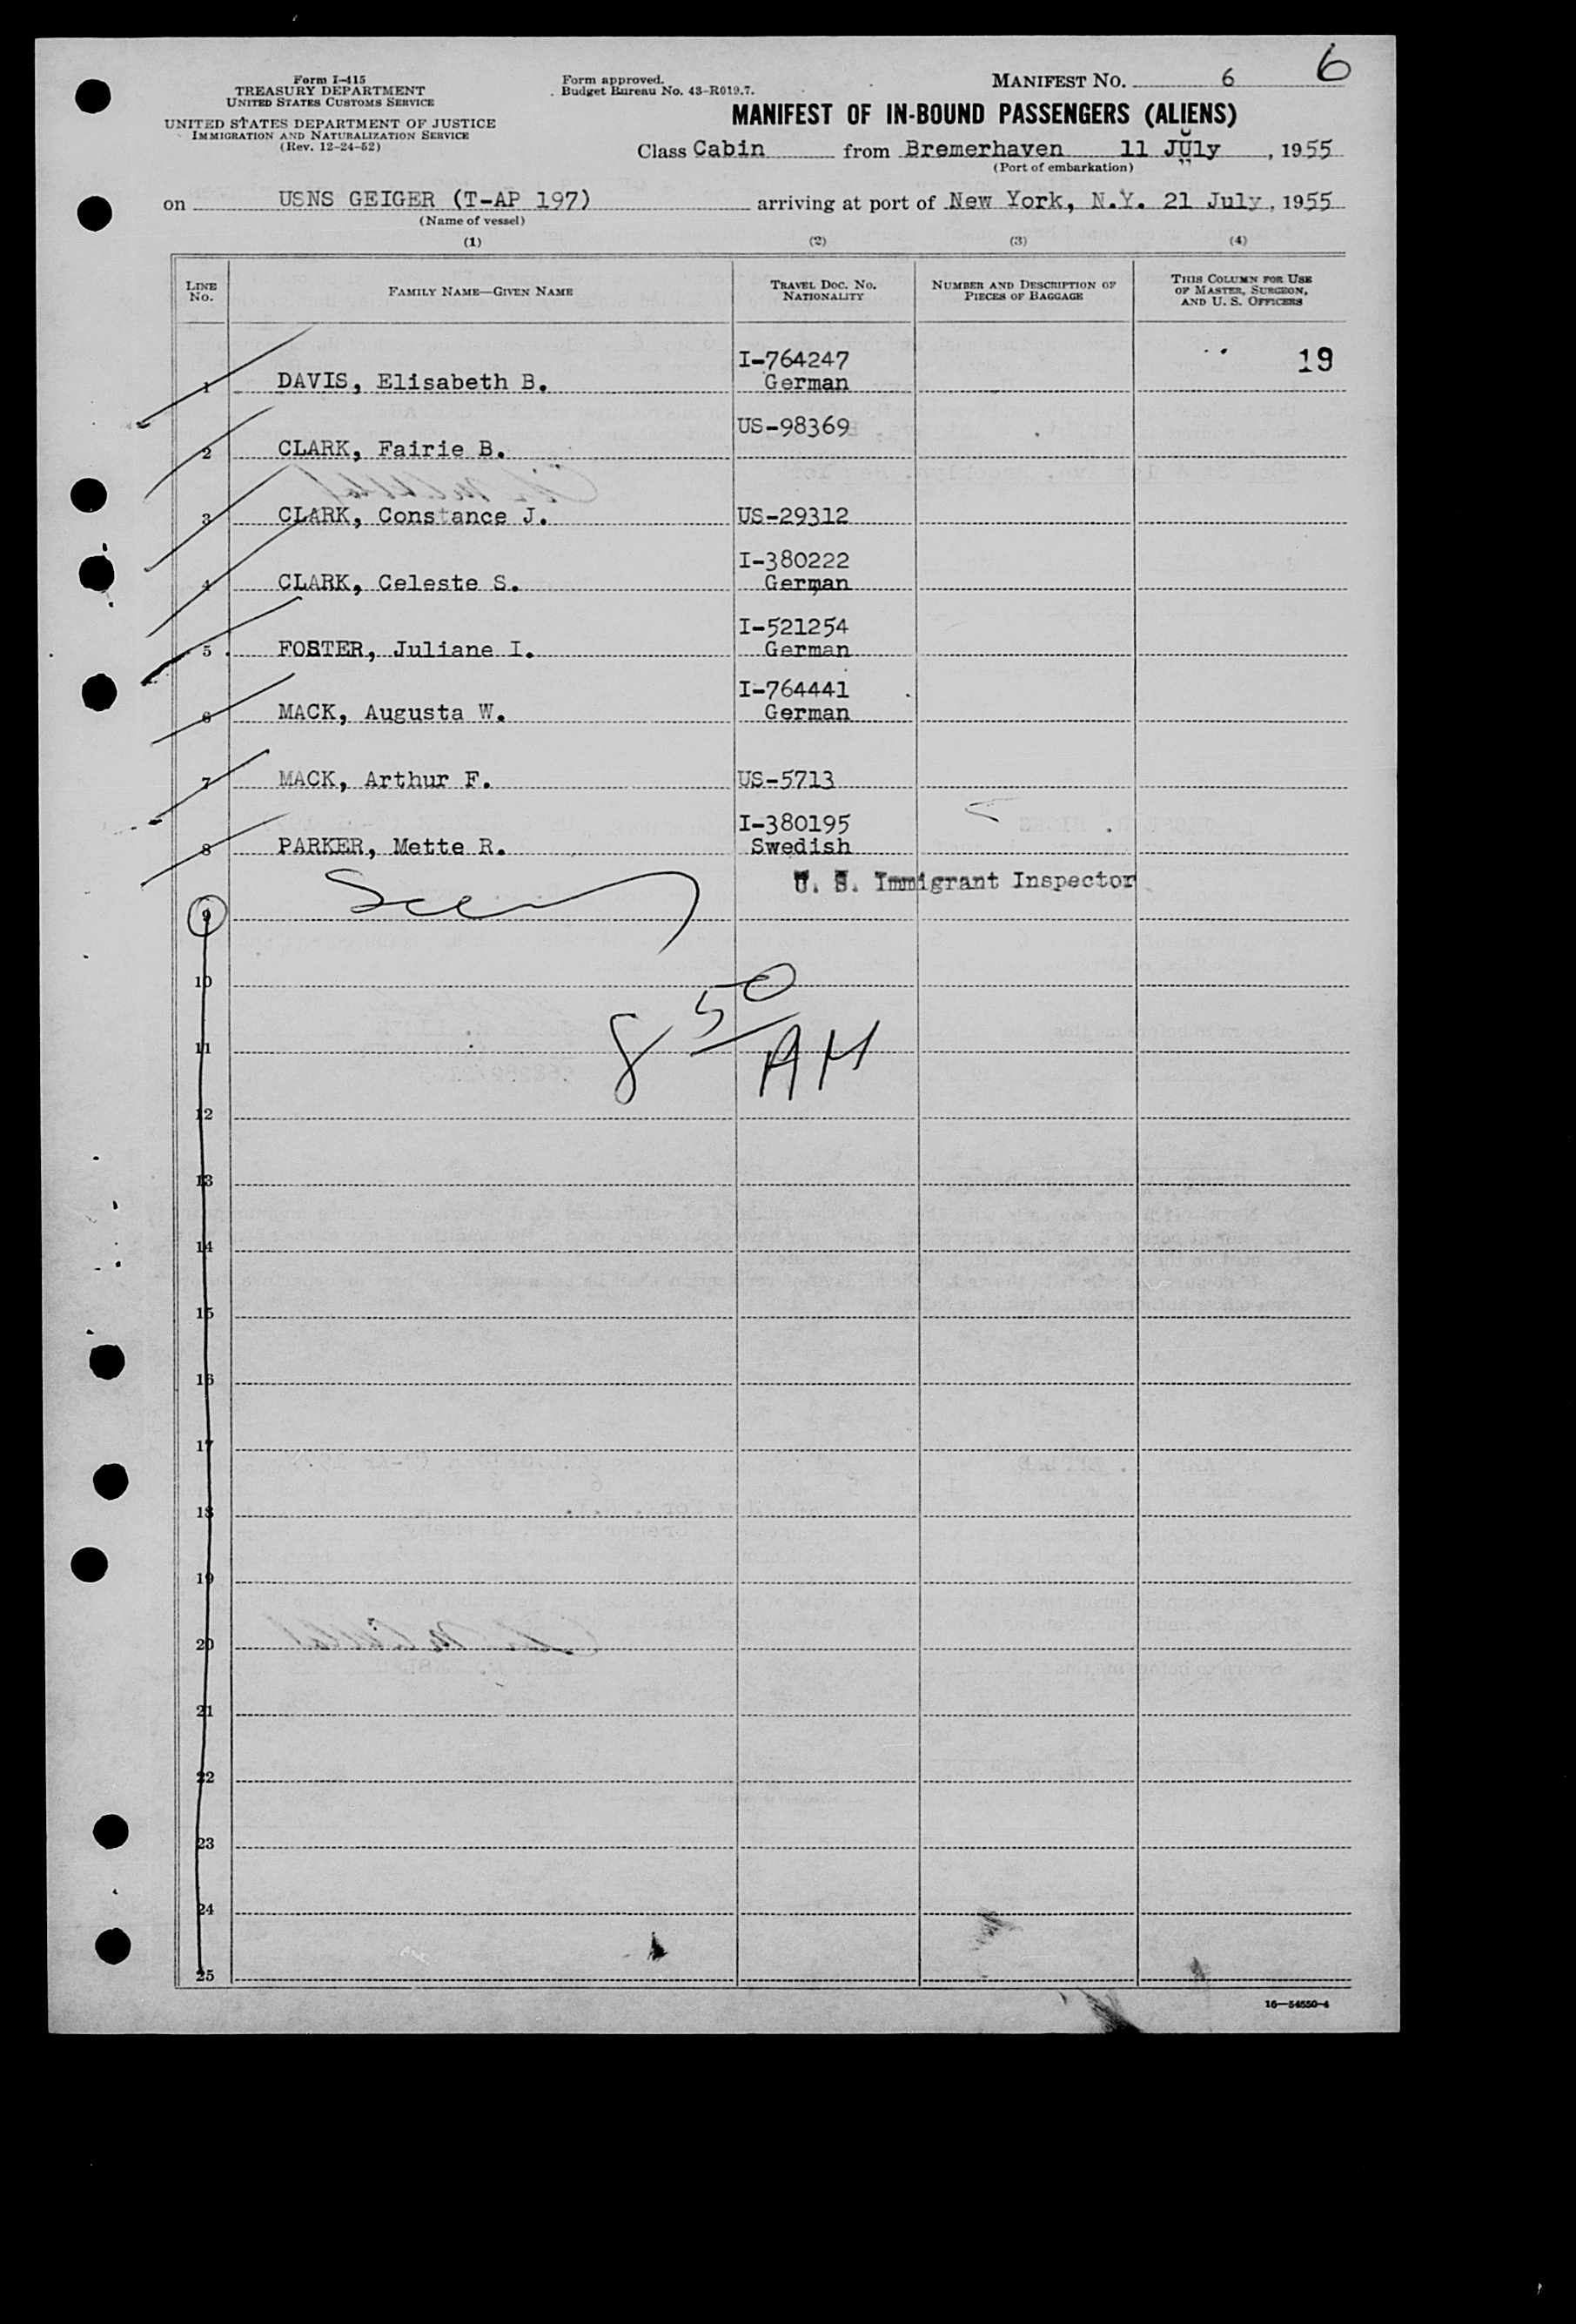 Form I-415
TREASURY DEPARTMENT
UNITED STATES CUSTOMS SERVICE
UNITED STATES DEPARTMENT OF JUSTICE
IMMIGRATION AND NATURALIZATION SERVICE
(Rev. 12-24-52)
Form approved.
Budget Bureau No. 43-R019.7.
MANIFEST No. 6
6
MANIFEST OF IN-BOUND PASSENGERS (ALIENS)
Class Cabin from Bremerhaven 11 JUly, 1955
(Port of embarkation)
on USNS GEIGER (T-AP 197) arriving at port of New York, N.Y. 21 July, 1955
(Name of vessel)
(1) (2) (3) (4)
LINE No. FAMILY NAME—GIVEN NAME TRAVEL DOC. NO. NATIONALITY NUMBER AND DESCRIPTION OF PIECES OF BAGGAGE THIS COLUMN FOR USE OF MASTER, SURGEON, AND U. S. OFFICERS
I-764247 19
1 DAVIS, Elisabeth B. German
US-98369
2 CLARK, Fairie B.
3 CLARK, Constance J. US-29312
I-380222
4 CLARK, Celeste S. German
I-521254
5 FOSTER, Juliane I. German
I-764441
6 MACK, Augusta W. German
7 MACK, Arthur F. US-5713
I-380195
8 PARKER, Mette R. Swedish
U. S. Immigrant Inspector
9
10
8 50 AM
11
12
13
14
15
16
17
18
19
20
21
22
23
24
25
16—54550-4